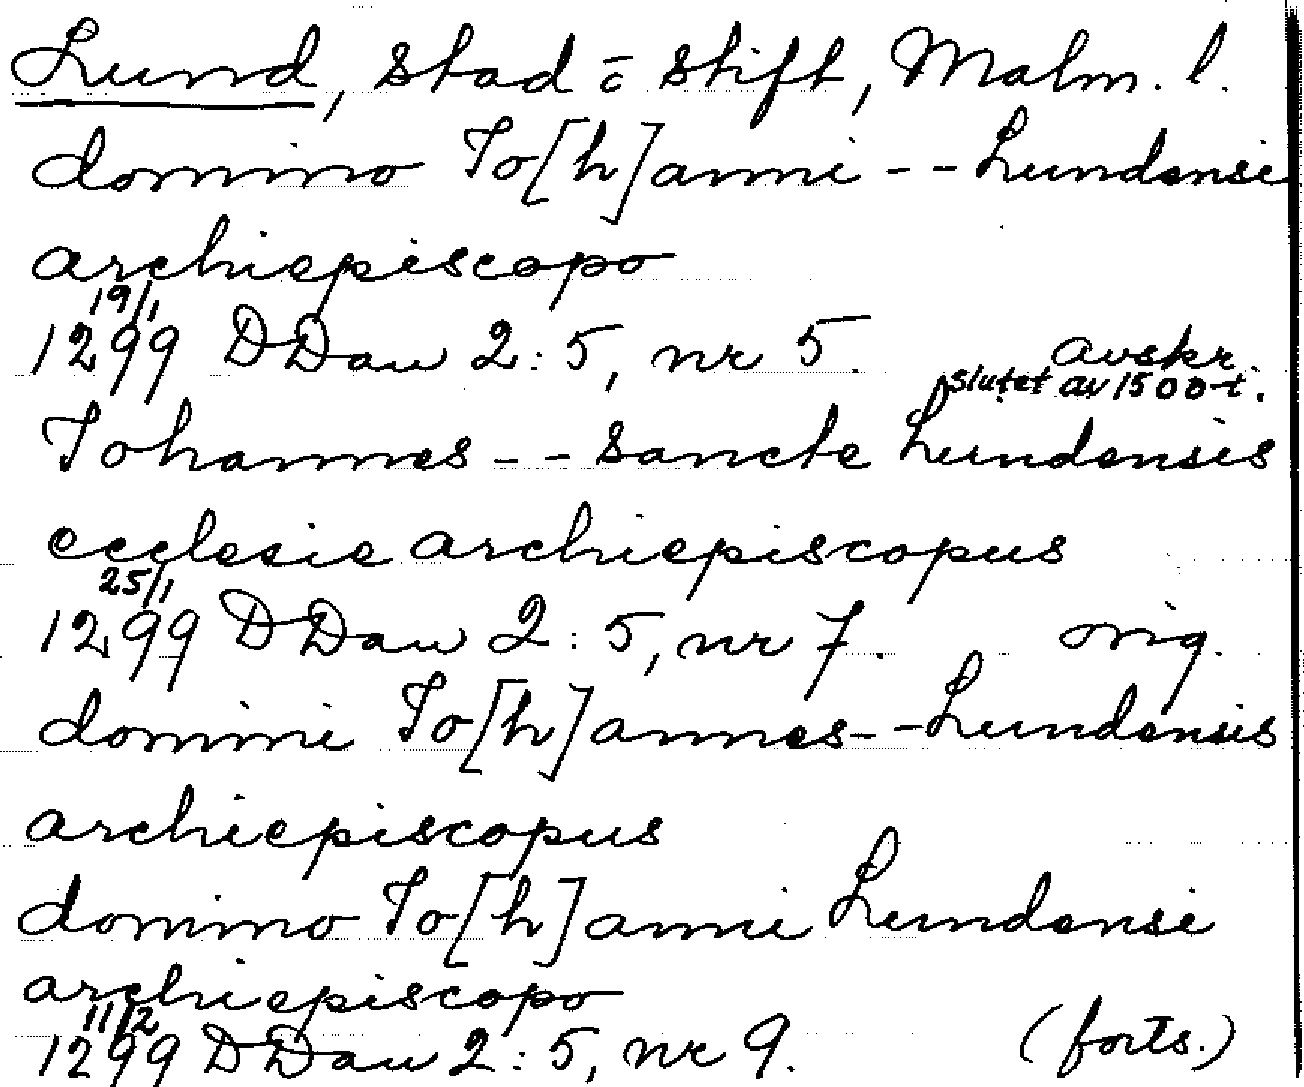 Lund, stad o stift, Malm. l.
domino Jo[h]anni -- Lundensi
archiepiscopo
19/1
1299 DDan 2:5, nr 5. avskr.
slutet av 1500-t.
Johannes -- sancte Lundensis
ecclesie archiepiscopus
25/1
1299 DDan 2:5, nr 7. orig.
domini Jo[h]annes -- Lundensis
archiepiscopus
domino Jo[h]anni Lundensi
archiepiscopo
11/2
1299 DDan 2:5, nr 9. (forts.)